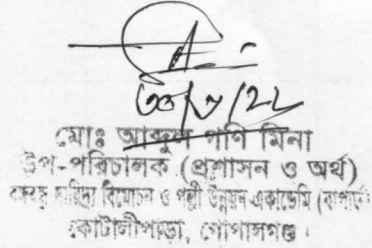 ৩০/৬/২২
মোঃ আব্দুল গণি মিনা
উপ-পরিচালক (প্রশাসন ও অর্থ)
বঙ্গবন্ধু দারিদ্র্য বিমোচন ও পল্লী উন্নয়ন একাডেমি (বাপার্ড)
কোটালীপাড়া, গোপালগঞ্জ।